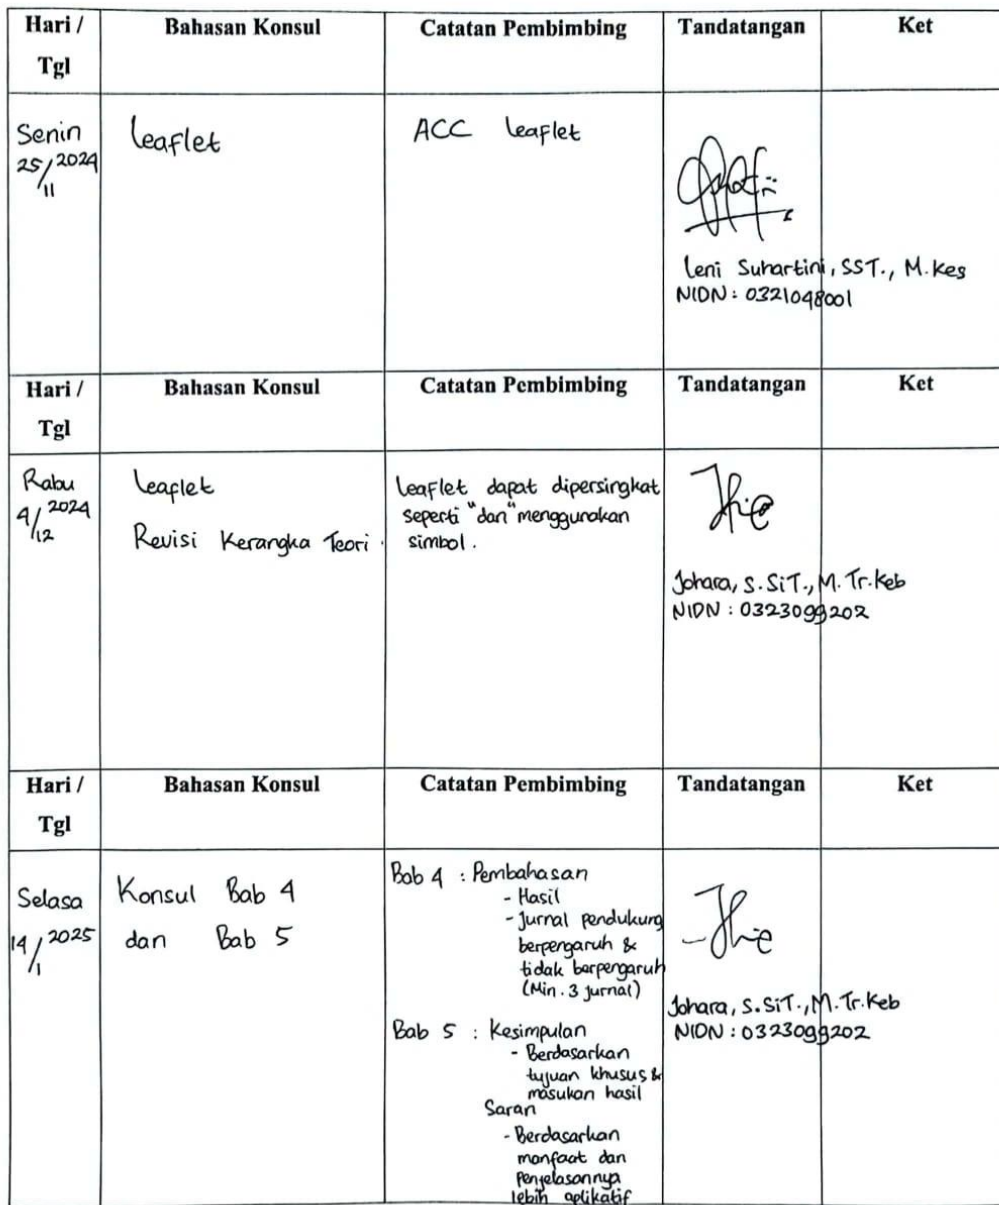 Hari / Tgl Bahasan Konsul Catatan Pembimbing Tandatangan Ket
Senin 25/11 2024 Leaflet ACC leaflet
Leni Suhartini, SST., M.Kes
NIDN : 0321048001
Hari / Tgl Bahasan Konsul Catatan Pembimbing Tandatangan Ket
Rabu 4/12 2024
Leaflet
Revisi Kerangka Teori .
Leaflet dapat dipersingkat
seperti "dan" menggunakan
simbol .
Johara, S.SiT., M.Tr.Keb
NIDN : 0323099202
Hari / Tgl Bahasan Konsul Catatan Pembimbing Tandatangan Ket
Selasa 14/1 2025
Konsul Bab 4
dan Bab 5
Bab 4 : Pembahasan
- Hasil
- Jurnal pendukung
berpengaruh &
tidak berpengaruh
(Min. 3 jurnal)
Bab 5 : Kesimpulan
- Berdasarkan
tujuan khusus &
masukan hasil
Saran
- Berdasarkan
manfaat dan
Penjelasannya
lebih aplikatif
Johara, S.SiT., M.Tr.Keb
NIDN : 0323099202